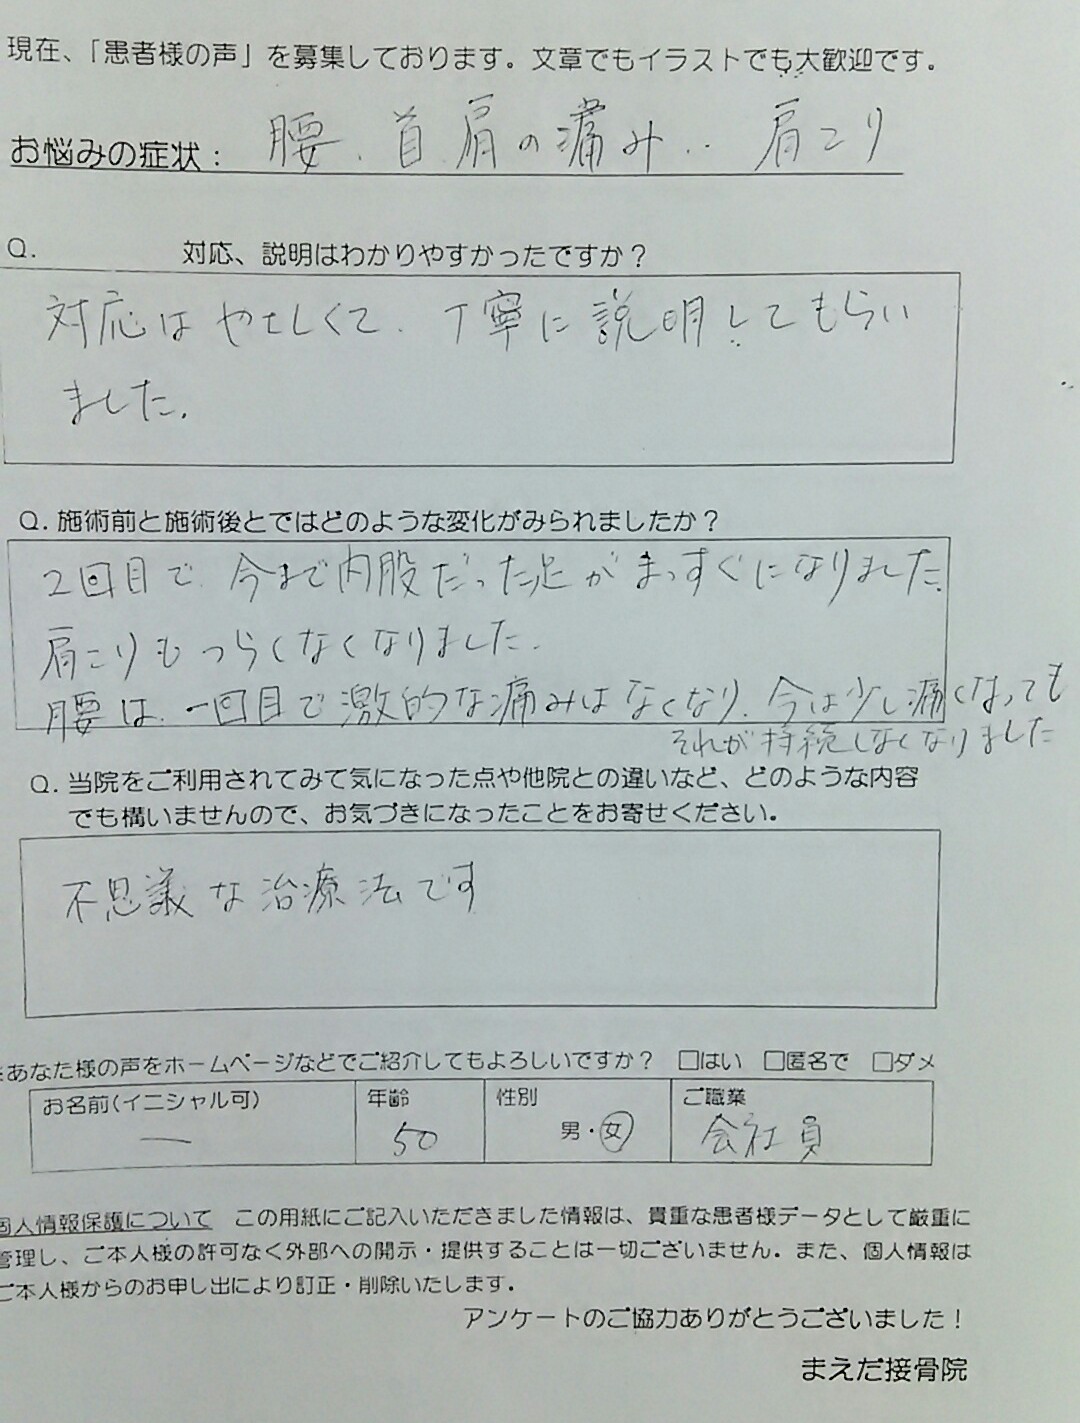 現在、「患者様の声」を募集しております。文章でもイラストでも大歓迎です。
お悩みの症状： 腰、首、肩の痛み、、肩こり
Q. 対応、説明はわかりやすかったですか？
対応はやさしくて、丁寧に説明してもらい
ました。
Q. 施術前と施術後とではどのような変化がみられましたか？
2回目で、今まで内股だった足がまっすぐになりました。
肩こりもつらくなくなりました。
腰は、一回目で激的な痛みはなくなり、今は少し痛くなっても
それが持続しなくなりました
Q. 当院をご利用されてみて気になった点や他院との違いなど、どのような内容
でも構いませんので、お気づきになったことをお寄せください。
不思議な治療法です
※あなた様の声をホームページなどでご紹介してもよろしいですか？ □はい □匿名で □ダメ
お名前（イニシャル可） 年齢 性別 ご職業
― 50 男・女 会社員
個人情報保護について この用紙にご記入いただきました情報は、貴重な患者様データとして厳重に
管理し、ご本人様の許可なく外部への開示・提供することは一切ございません。また、個人情報は
ご本人様からのお申し出により訂正・削除いたします。
アンケートのご協力ありがとうございました！
まえだ接骨院